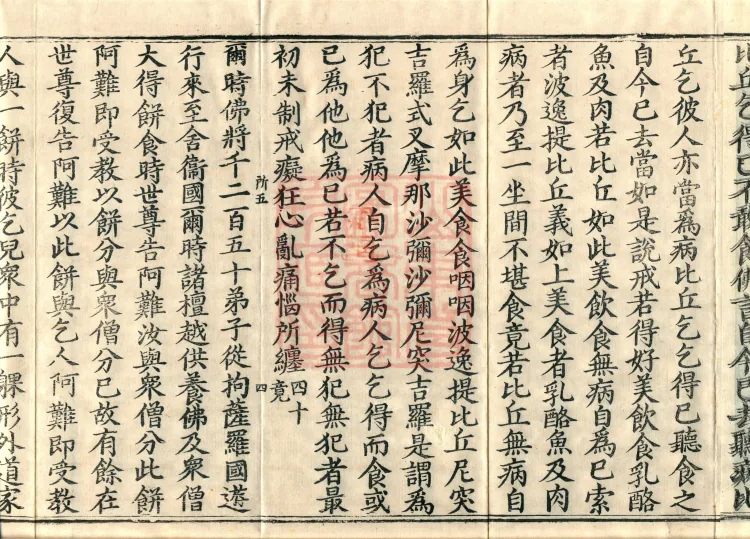 比丘乞得已不敢食佛言自今已去聽病比
丘乞彼人亦當爲病比丘乞乞得已聽食之
自今已去當如是說戒若得好美飲食乳酪
魚及肉若比丘如此美飲食無病自爲已索
者波逸提比丘義如上美食者乳酪魚及肉
病者乃至一坐間不堪食竟若比丘無病自
爲身乞如此美食食咽咽波逸提比丘尼突
吉羅式叉摩那沙彌沙彌尼突吉羅是謂爲
犯不犯者病人自乞爲病人乞乞得而食或
已爲他他爲已若不乞而得無犯無犯者最
初未制戒癡狂心亂痛惱所纏四十竟
所五
四
爾時佛將千二百五十弟子從拘薩羅國遊
行來至舍衞國爾時諸檀越供養佛及衆僧
大得餅食時世尊告阿難汝與衆僧分此餅
阿難即受教以餅分與衆僧分已故有餘在
世尊復告阿難以此餅與乞人阿難即受教
人與一餅時彼乞兒衆中有一躶形外道家